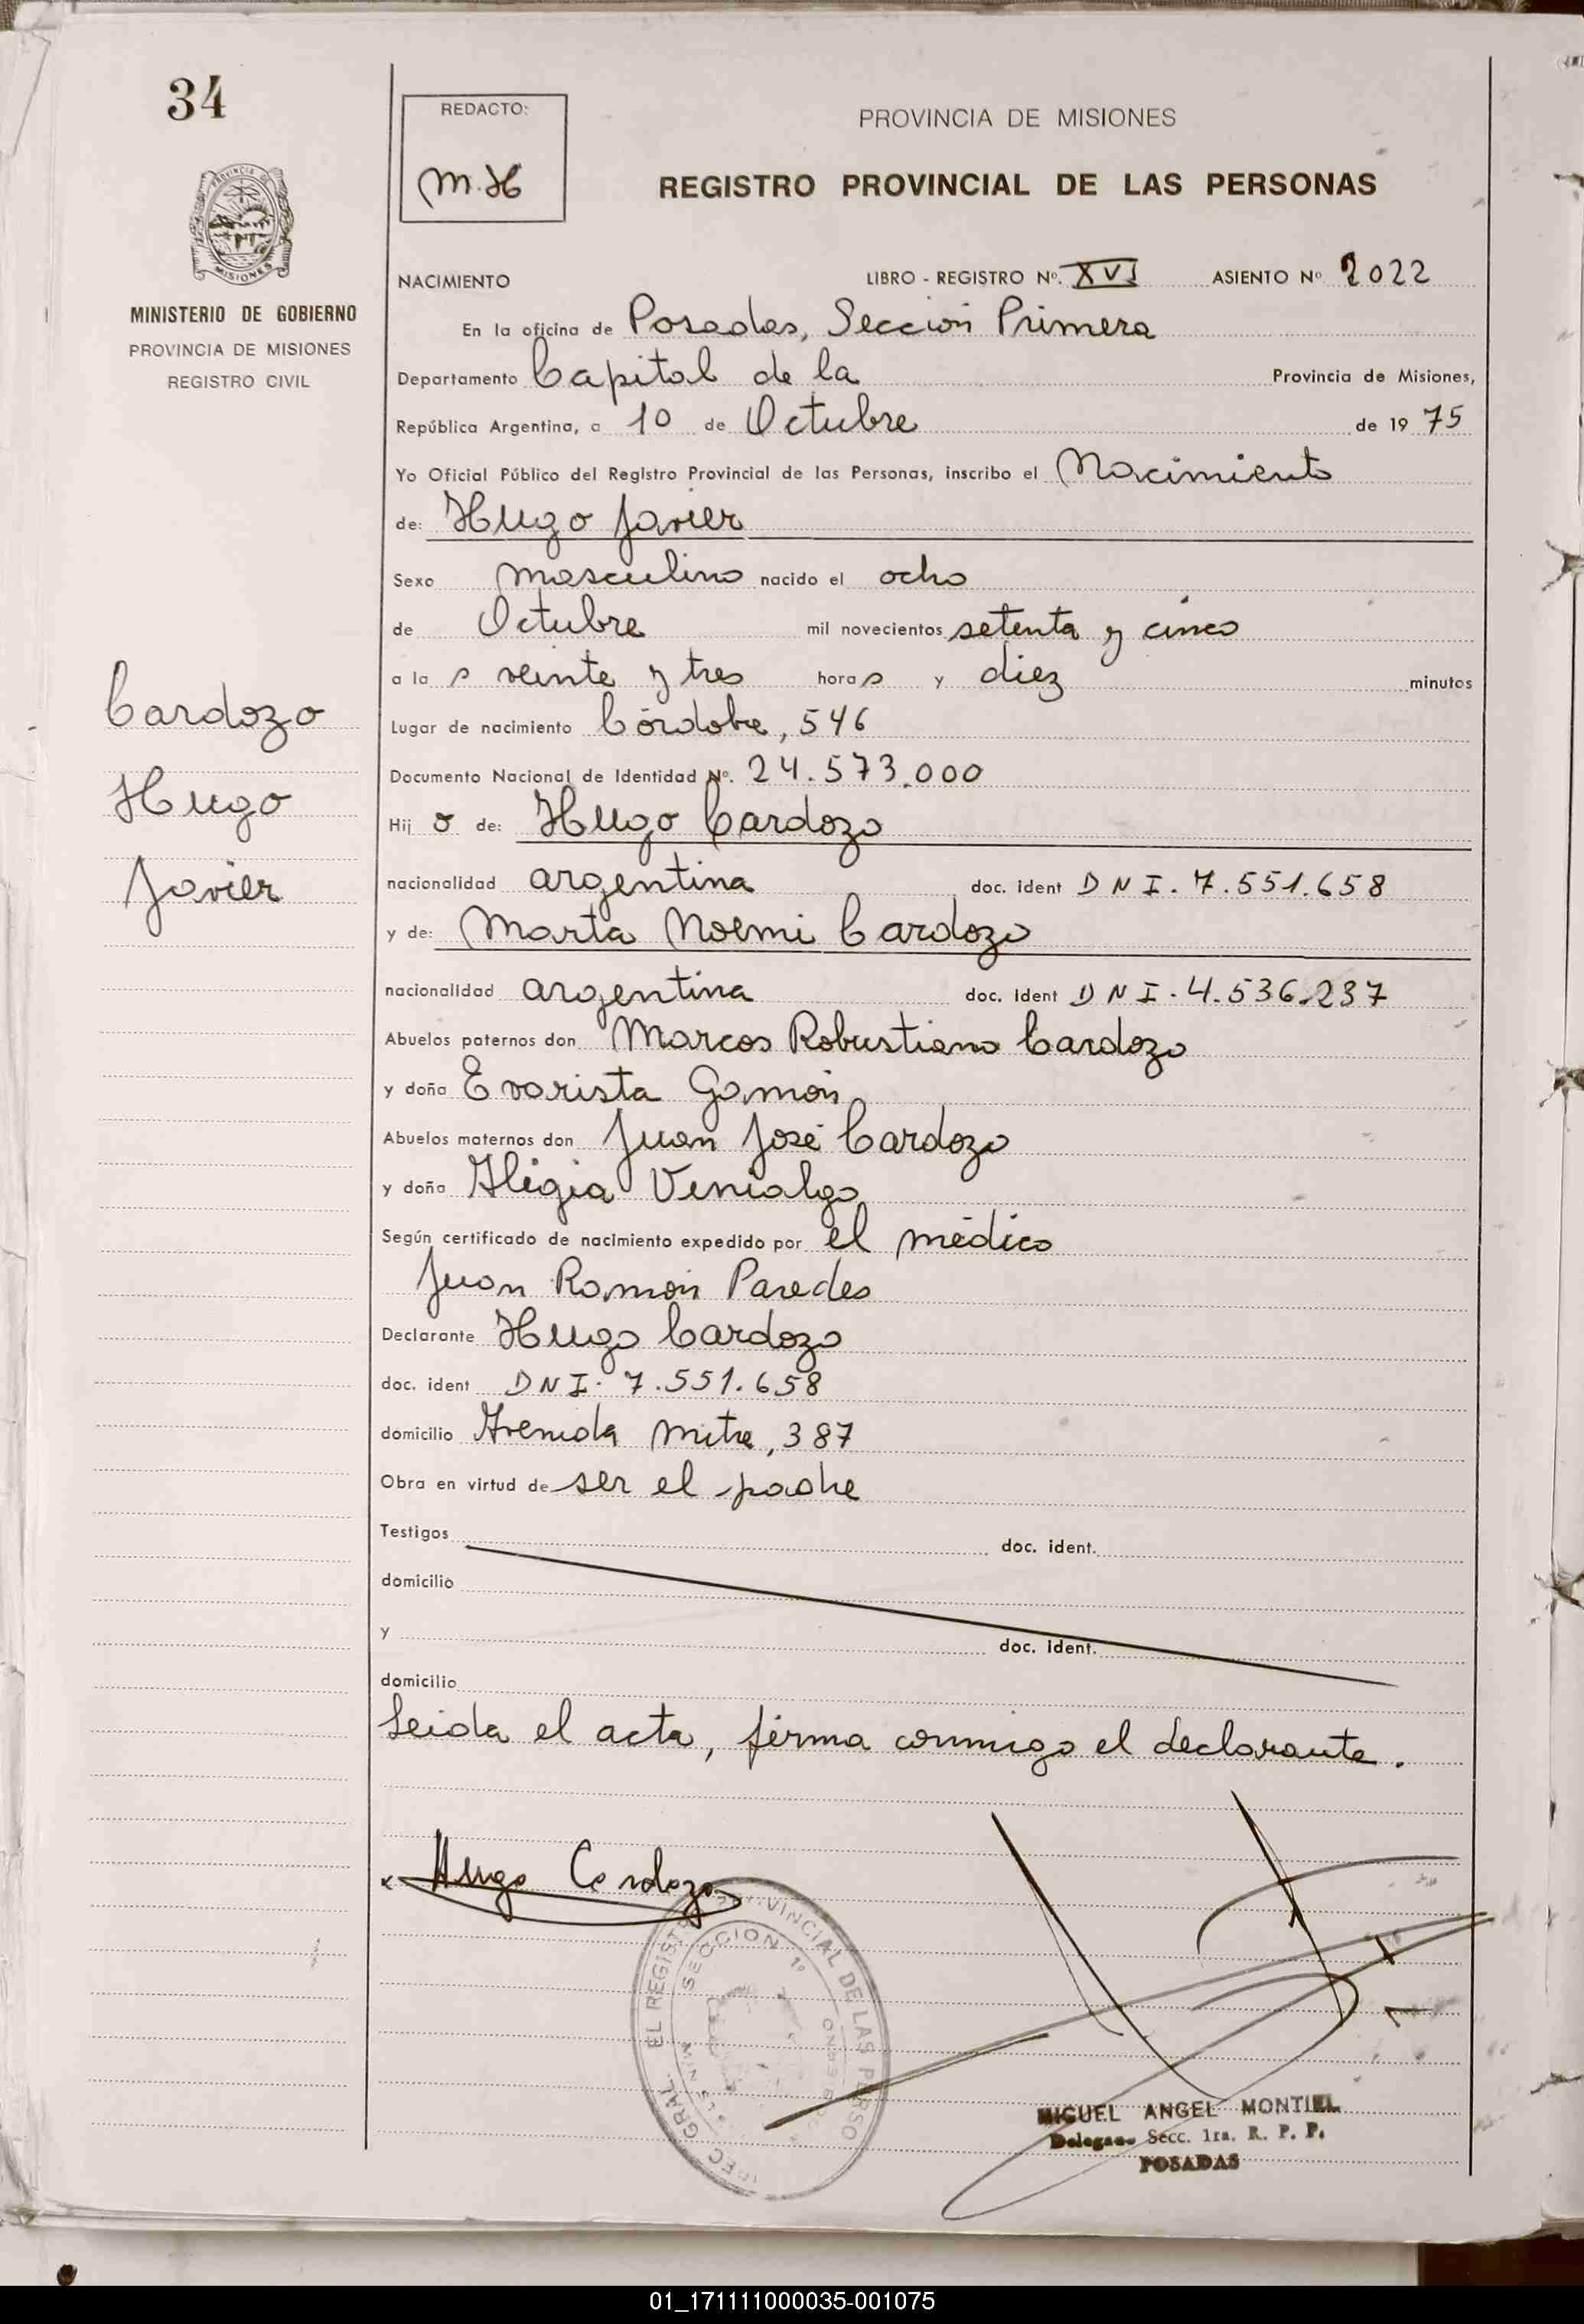 34
REDACTO:
M.H
PROVINCIA DE MISIONES
REGISTRO PROVINCIAL DE LAS PERSONAS
PROVINCIA DE
MISIONES
MINISTERIO DE GOBIERNO
PROVINCIA DE MISIONES
REGISTRO CIVIL
NACIMIENTO LIBRO - REGISTRO Nº. XVI ASIENTO Nº 2022
En la oficina de Posadas, Sección Primera
Departamento Capital de la Provincia de Misiones,
República Argentina, a 10 de Octubre de 19 75
Yo Oficial Público del Registro Provincial de las Personas, inscribo el Nacimiento
de: Hugo Javier
Sexo masculino nacido el ocho
de Octubre mil novecientos setenta y cinco
a la s veinte y tres hora s y diez minutos
Cardozo
Hugo
Javier
Lugar de nacimiento Córdoba, 546
Documento Nacional de Identidad Nº. 24.573.000
Hij o de: Hugo Cardozo
nacionalidad argentina doc. ident DNI. 7.551.658
y de: Marta Noemi Cardozo
nacionalidad argentina doc. ident DNI. 4.536.237
Abuelos paternos don Marcos Robustiano Cardozo
y doña Evarista Gamón
Abuelos maternos don Juan José Cardozo
y doña Eligia Venialgo
Según certificado de nacimiento expedido por el médico
Juan Ramón Paredes
Declarante Hugo Cardozo
doc. ident DNI. 7.551.658
domicilio Avenida Mitre, 387
Obra en virtud de ser el padre
Testigos doc. ident.
domicilio
y doc. ident.
domicilio
Leida el acta, firma conmigo el declarante.
Hugo Cardozo
EL REGISTRO PROVINCIAL DE LAS PERSO
SECCION 1º
GRAL.
MIGUEL ANGEL MONTIEL
Delegado Secc. 1ra. R. P. P.
POSADAS
01_171111000035-001075